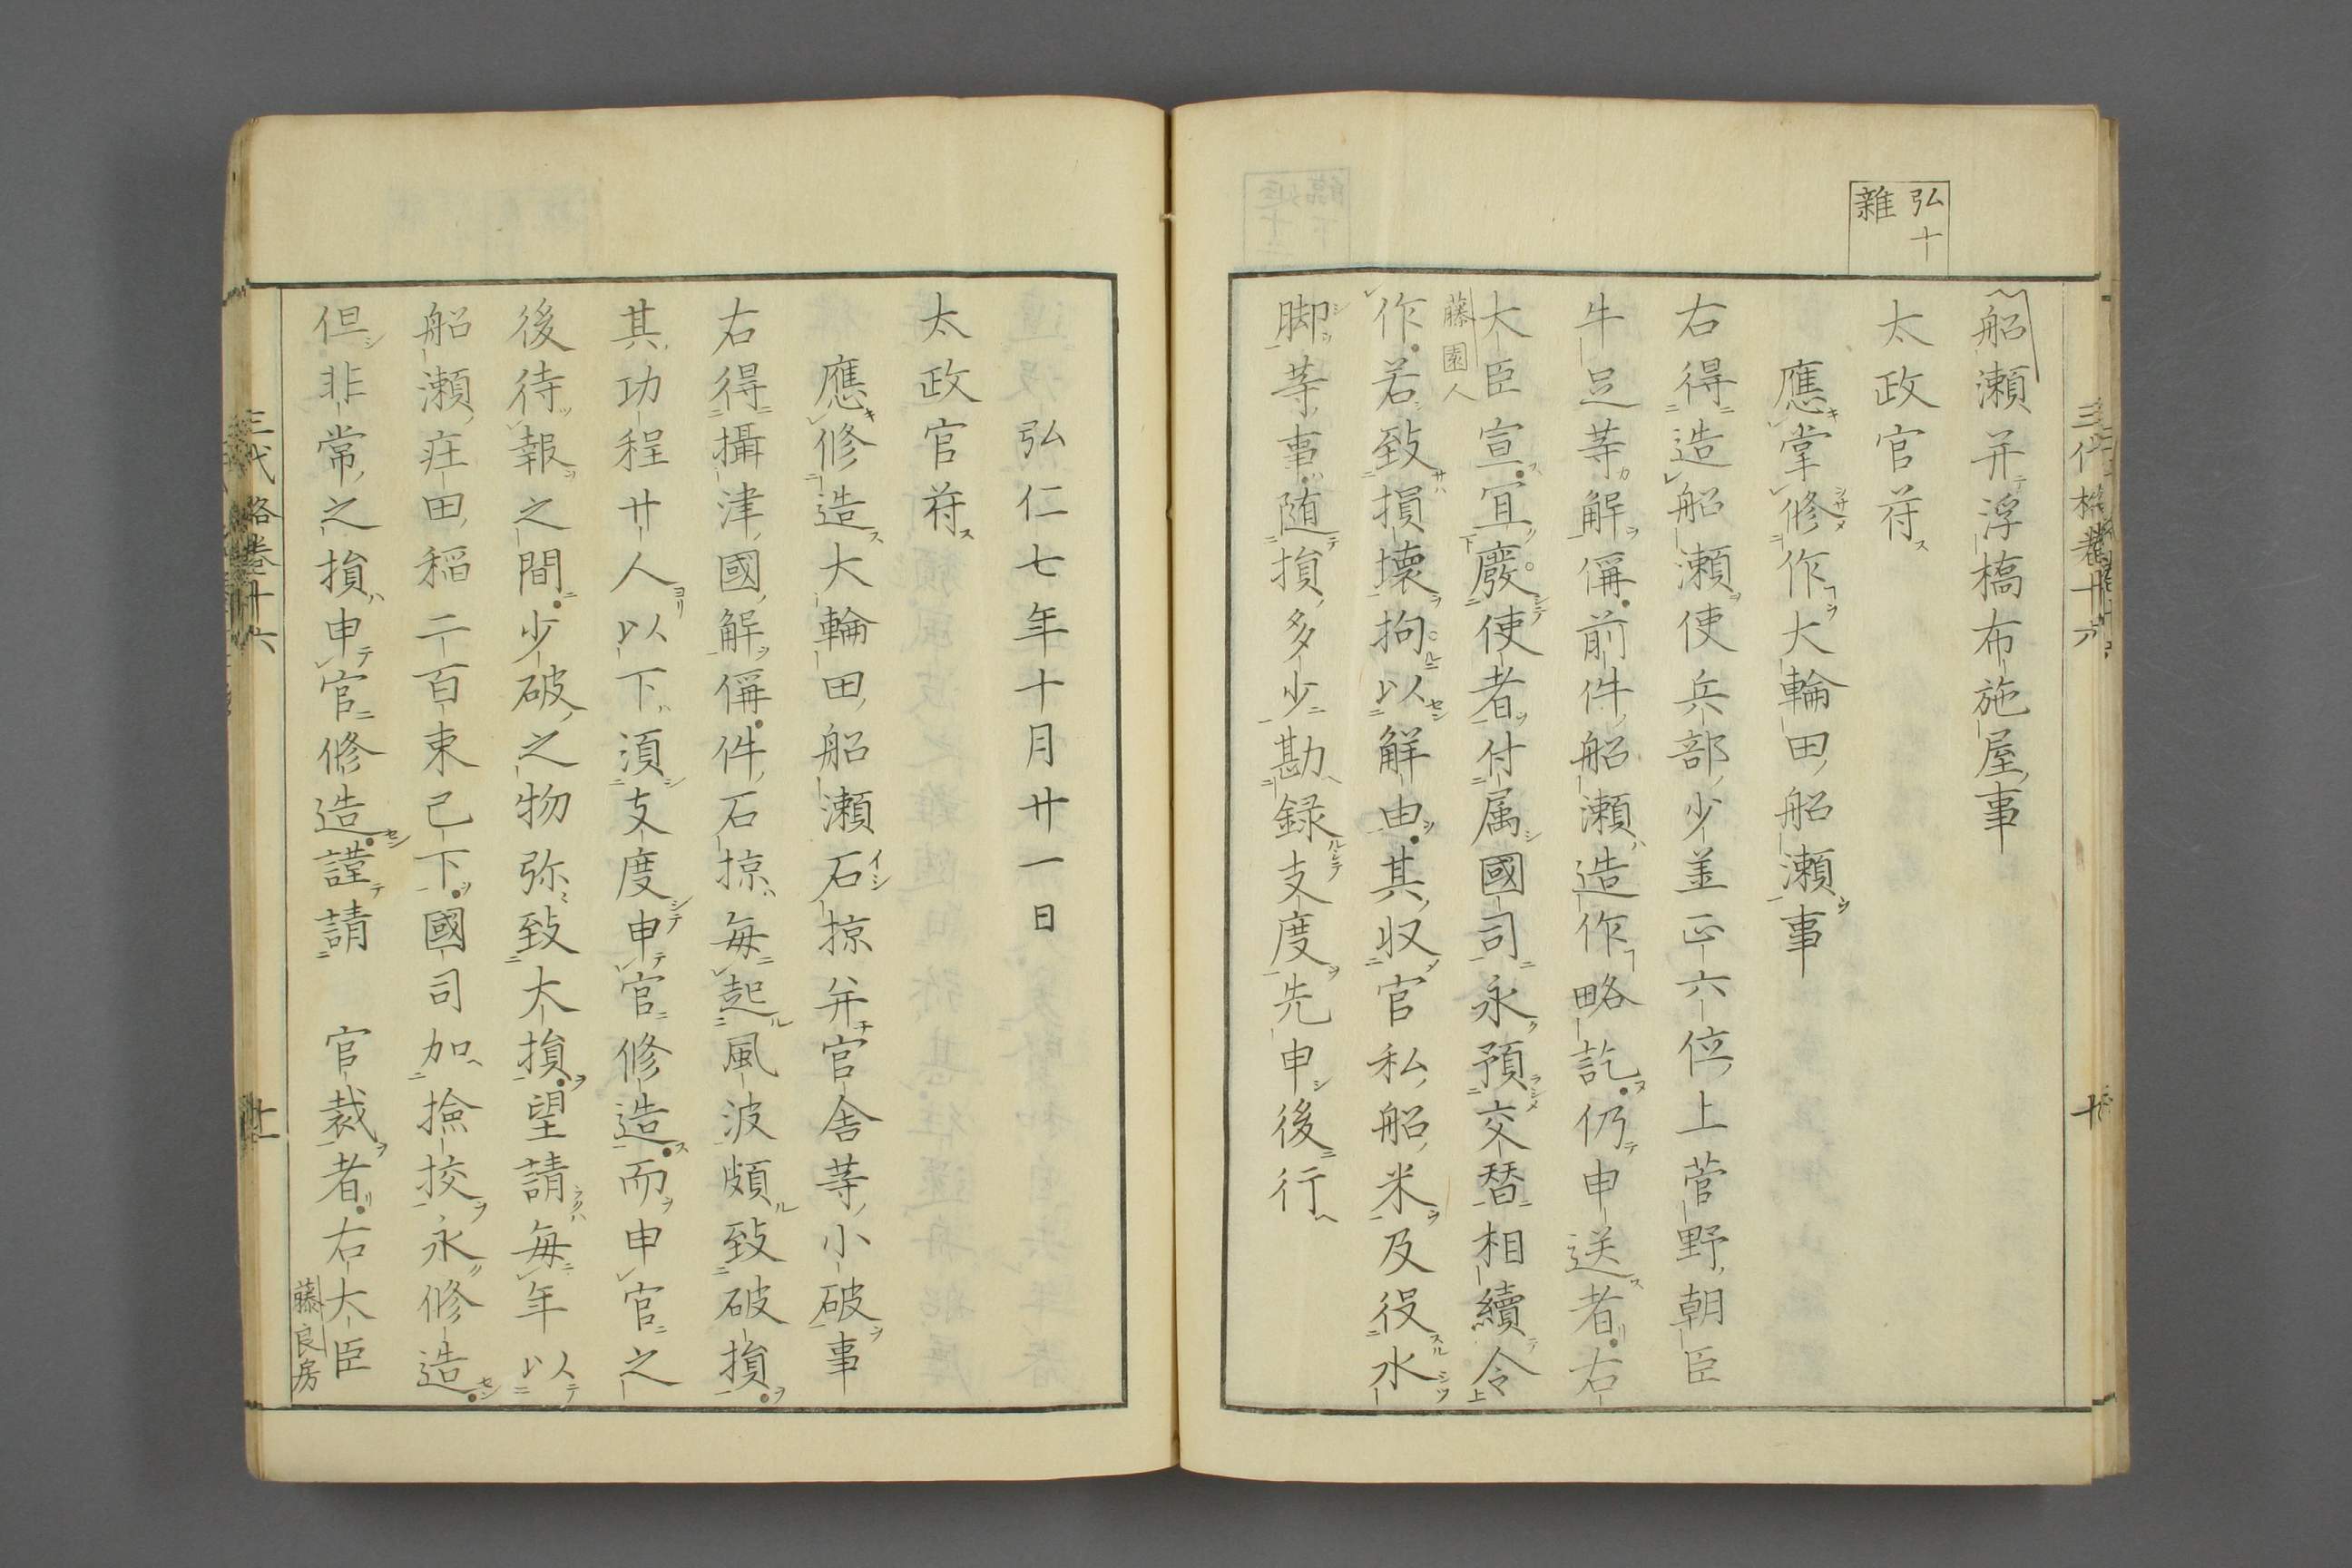 弘十
雜
船瀬并浮橋布施屋事
太政官符
應掌修作大輪田船瀬事
右得造船瀬使兵部少丞正六位上菅野朝臣
牛足等解偁前件船瀬造作略訖仍申送者右
大臣宣宜廢使者付属國司永預交替相續令
藤園人
作若致損壊拘以解由其収官私船米及役水
脚等事随損多少勘録支度先申後行
弘仁七年十月廿一日
太政官符
應修造大輪田船瀬石掠并官舎等小破事
右得攝津國解偁件石掠毎起風波頗致破損
其功程廿人以下須支度申官修造而申官之
後待報之間少破之物弥致大損望請毎年以
船瀬庄田稲二百束已下國司加撿挍永修造
但非常之損申官修造謹請　官裁者右大臣
藤良房
三代格巻十六
十
三代格巻十六
十一